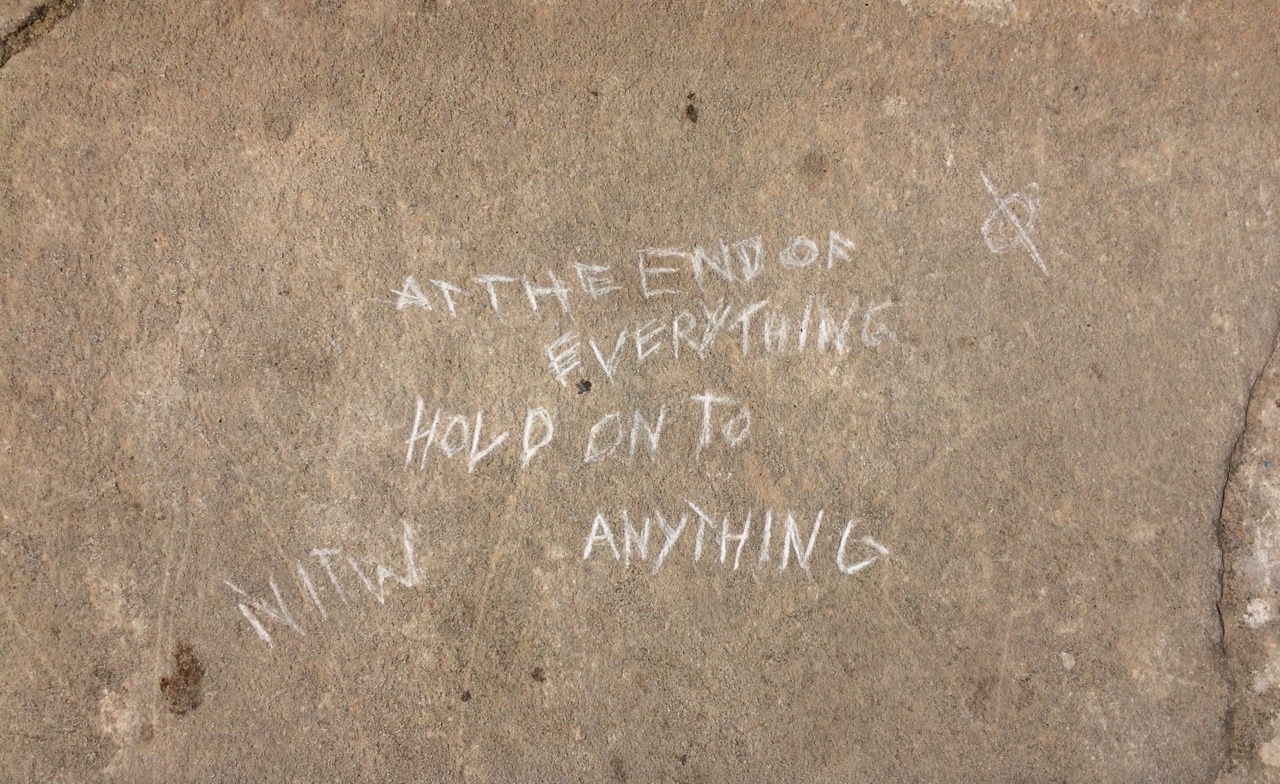 AT THE END OF
EVERYTHING
HOLD ON TO
ANYTHING
NITW